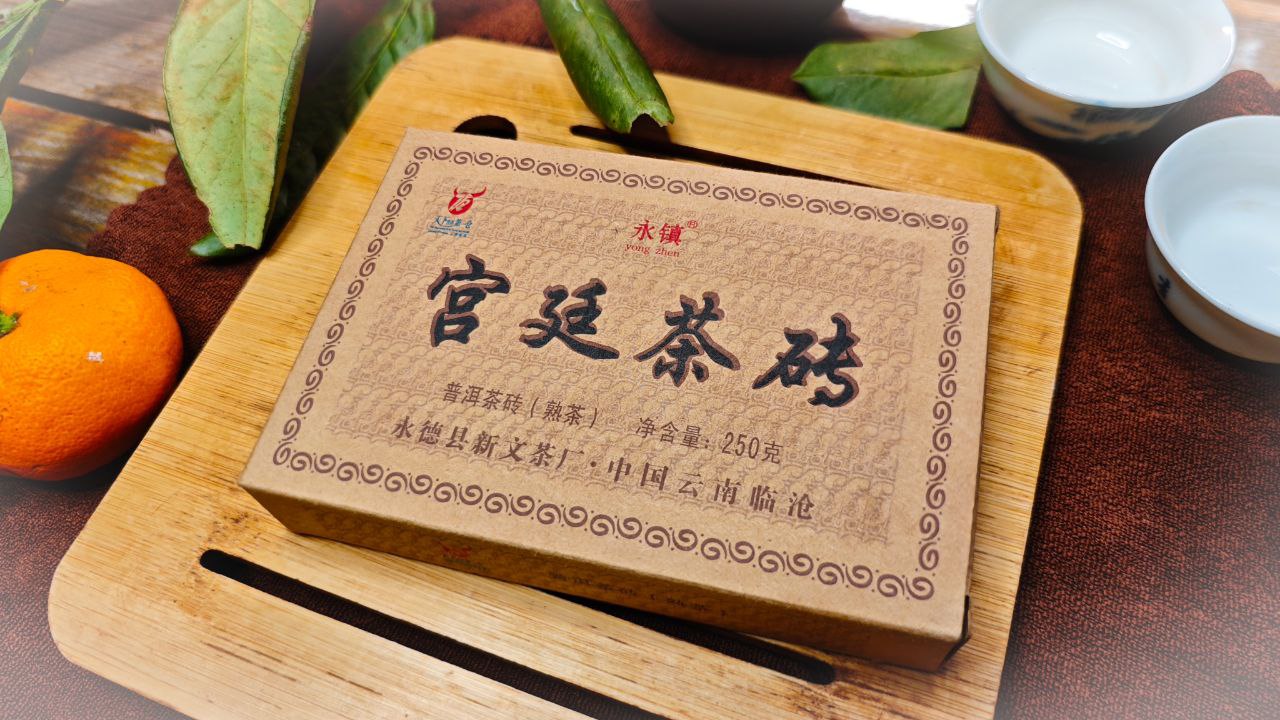 永镇®
yong zhen
宫廷茶砖
普洱茶砖（熟茶） 净含量：250克
永德县新文茶厂·中国云南临沧